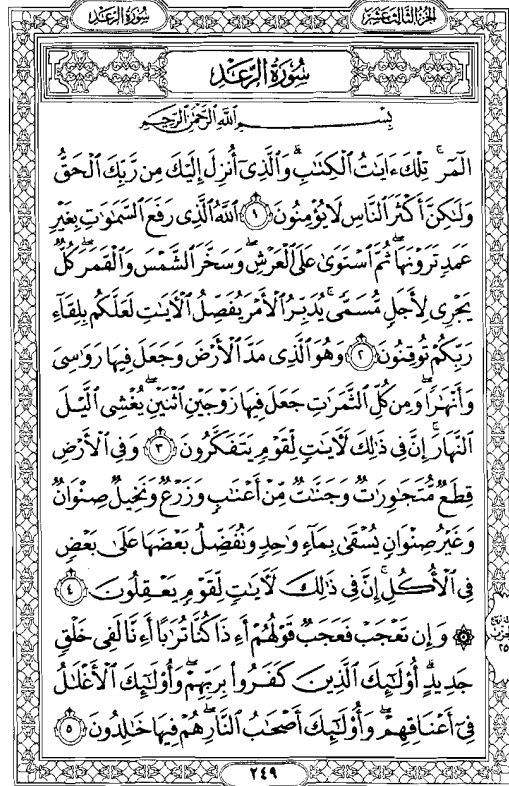 الجزء الثالث عشر
سورة الرعد
سورة الرعد
بسم الله الرحمن الرحيم
الٓمٓرۚ تِلْكَ ءَايَٰتُ ٱلْكِتَٰبِۗ وَٱلَّذِىٓ أُنزِلَ إِلَيْكَ مِن رَّبِّكَ ٱلْحَقُّ
وَلَٰكِنَّ أَكْثَرَ ٱلنَّاسِ لَا يُؤْمِنُونَ ١ ٱللَّهُ ٱلَّذِى رَفَعَ ٱلسَّمَٰوَٰتِ بِغَيْرِ
عَمَدٍ تَرَوْنَهَاۖ ثُمَّ ٱسْتَوَىٰ عَلَى ٱلْعَرْشِۖ وَسَخَّرَ ٱلشَّمْسَ وَٱلْقَمَرَۖ كُلٌّ
يَجْرِى لِأَجَلٍ مُّسَمًّىۚ يُدَبِّرُ ٱلْأَمْرَ يُفَصِّلُ ٱلْءَايَٰتِ لَعَلَّكُم بِلِقَآءِ
رَبِّكُمْ تُوقِنُونَ ٢ وَهُوَ ٱلَّذِى مَدَّ ٱلْأَرْضَ وَجَعَلَ فِيهَا رَوَٰسِىَ
وَأَنْهَٰرًاۖ وَمِن كُلِّ ٱلثَّمَرَٰتِ جَعَلَ فِيهَا زَوْجَيْنِ ٱثْنَيْنِۖ يُغْشِى ٱلَّيْلَ
ٱلنَّهَارَۚ إِنَّ فِى ذَٰلِكَ لَءَايَٰتٍ لِّقَوْمٍ يَتَفَكَّرُونَ ٣ وَفِى ٱلْأَرْضِ
قِطَعٌ مُّتَجَٰوِرَٰتٌ وَجَنَّٰتٌ مِّنْ أَعْنَٰبٍ وَزَرْعٌ وَنَخِيلٌ صِنْوَانٌ
وَغَيْرُ صِنْوَانٍ يُسْقَىٰ بِمَآءٍ وَٰحِدٍ وَنُفَضِّلُ بَعْضَهَا عَلَىٰ بَعْضٍ
فِى ٱلْأُكُلِۚ إِنَّ فِى ذَٰلِكَ لَءَايَٰتٍ لِّقَوْمٍ يَعْقِلُونَ ٤
۞ وَإِن تَعْجَبْ فَعَجَبٌ قَوْلُهُمْ أَءِذَا كُنَّا تُرَٰبًا أَءِنَّا لَفِى خَلْقٍ
جَدِيدٍۗ أُو۟لَٰٓئِكَ ٱلَّذِينَ كَفَرُوا۟ بِرَبِّهِمْۖ وَأُو۟لَٰٓئِكَ ٱلْأَغْلَٰلُ
فِىٓ أَعْنَاقِهِمْۖ وَأُو۟لَٰٓئِكَ أَصْحَٰبُ ٱلنَّارِۖ هُمْ فِيهَا خَٰلِدُونَ ٥
٢٤٩